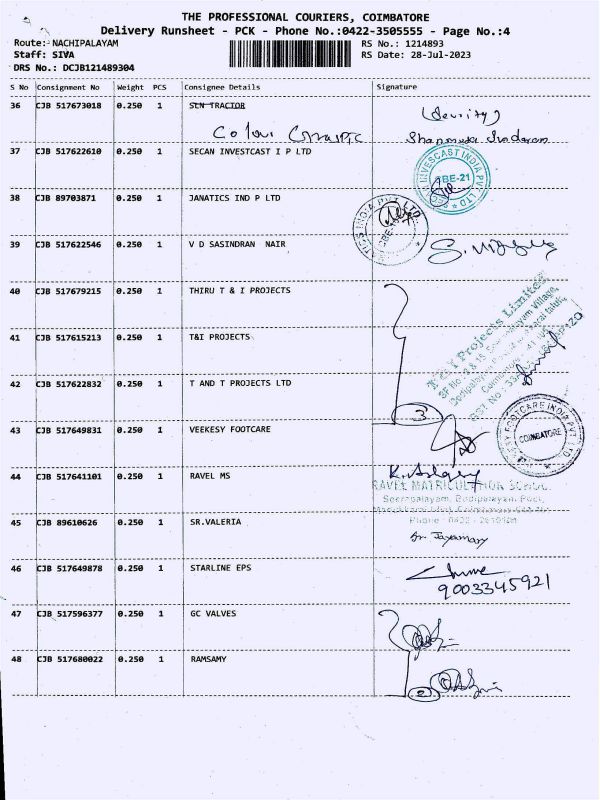 THE PROFESSIONAL COURIERS, COIMBATORE
Delivery Runsheet - PCK - Phone No.:0422-3505555 - Page No.:4
Route:- NACHIPALAYAM RS No.: 1214893
Staff: SIVA RS Date: 28-Jul-2023
DRS No.: DCJB121489304
S No Consignment No Weight PCS Consignee Details Signature
36 CJB 517673018 0.250 1 SCN TRACTOR
Colour
37 CJB 517622610 0.250 1 SECAN INVESTCAST I P LTD
38 CJB 89703871 0.250 1 JANATICS IND P LTD
39 CJB 517622546 0.250 1 V D SASINDRAN NAIR
40 CJB 517679215 0.250 1 THIRU T & I PROJECTS
T & I Projects Limited
41 CJB 517615213 0.250 1 T&I PROJECTS
42 CJB 517622832 0.250 1 T AND T PROJECTS LTD
3
43 CJB 517649831 0.250 1 VEEKESY FOOTCARE
COIMBATORE
44 CJB 517641101 0.250 1 RAVEL MS
RAVEL MATRICULATION SCHOOL
45 CJB 89610626 0.250 1 SR.VALERIA
Sr Jayamary
46 CJB 517649878 0.250 1 STARLINE EPS
9003345921
47 CJB 517596377 0.250 1 GC VALVES
48 CJB 517680022 0.250 1 RAMSAMY
2